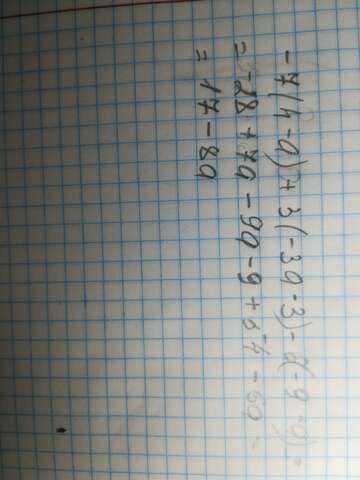 -7(4-a)+3(-3a-3)-
=-28+7a-9a-9+54-6a=
=17-8a